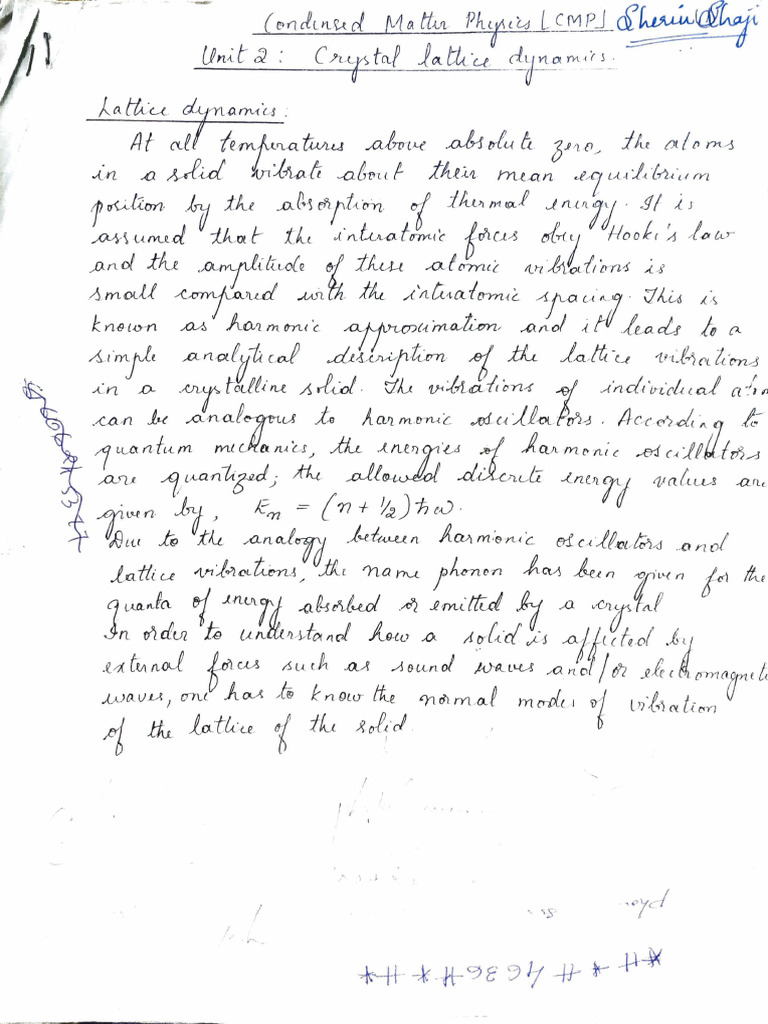 Condensed Matter Physics [CMP] Sherin Shaji
Unit 2: Crystal lattice dynamics.
Lattice dynamics:
At all temperatures above absolute zero, the atoms
in a solid vibrate about their mean equilibrium
position by the absorption of thermal energy. It is
assumed that the interatomic forces obey Hooke's law
and the amplitude of these atomic vibrations is
small compared with the interatomic spacing. This is
known as harmonic approximation and it leads to a
simple analytical description of the lattice vibrations
in a crystalline solid. The vibrations of individual atom
can be analogous to harmonic oscillators. According to
quantum mechanics, the energies of harmonic oscillators
are quantized; the allowed discrete energy values are
given by, En = (n + 1/2) ħω.
Due to the analogy between harmonic oscillators and
lattice vibrations, the name phonon has been given for the
quanta of energy absorbed or emitted by a crystal
In order to understand how a solid is affected by
external forces such as sound waves and/or electromagnetic
waves, one has to know the normal modes of vibration
of the lattice of the solid.
*#*#4636#*#*